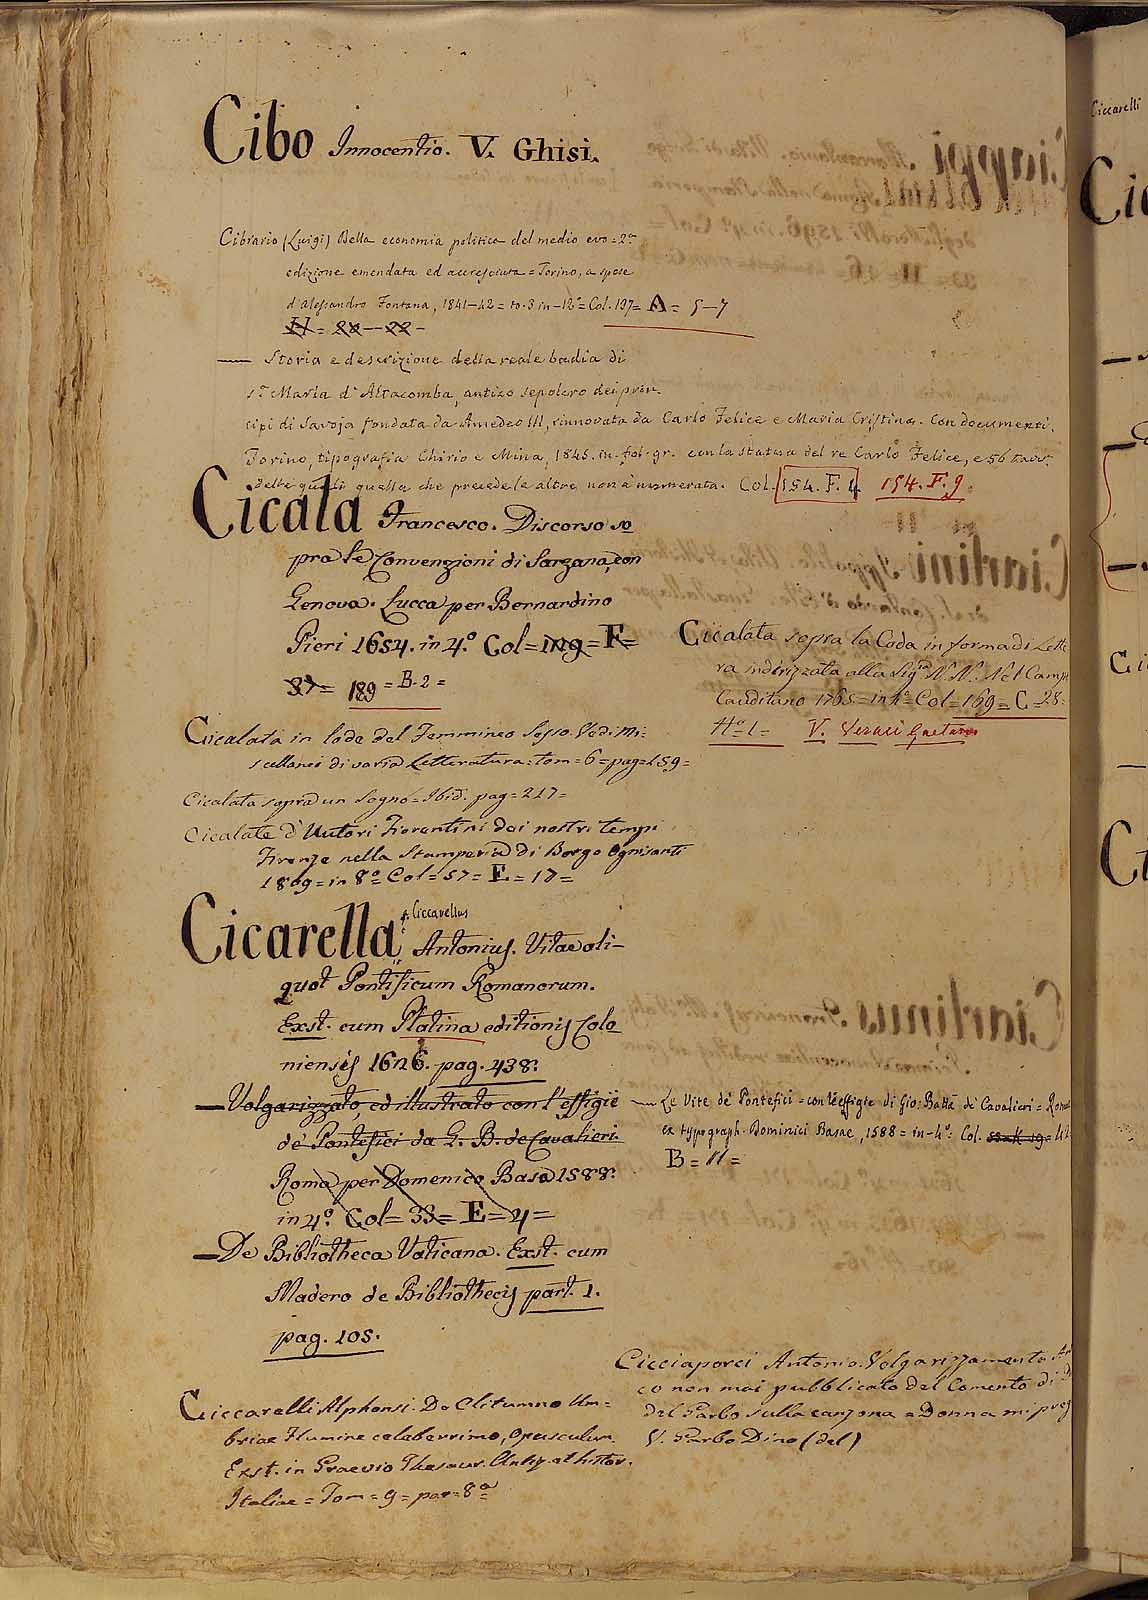 Cibo Innocentio. V. Ghisi.
Cibrario (Luigi) Della economia politica del medio evo = 2ª
edizione emendata ed accresciuta = Torino, a spese
d'Alessandro Fontana, 1841-42 = to. 3 in-12º = Col. 137 = A = 5-7
H = 20-22-
— Storia e descrizione della reale badia di
Sta Maria d'Altacomba, antico sepolcro dei prin-
cipi di Savoja fondata da Amedeo III, rinnovata da Carlo Felice e Maria Cristina. Con documenti.
Torino, tipografia Chirio e Mina, 1845. in-fol-gr. con la statua del re Carlo Felice, e 56 tavv.
delle quali quella che precede le altre non è numerata. Col. 154. F. 4 154. F. 9
Cicala Francesco. Discorso so
pra le Convenzioni di Sarzana, con
Genova. Lucca per Bernardino
Pieri 1654. in 4.º Col = 109 = F =
37 = 189 = B. 2 =
Cicalata sopra la Coda in forma di Lette
ra indirizzata alla Sigra N. N. Nel Camp
Cauditano 1765 = in 4º = Col = 169 = C = 28 =
Nº = 1 = V. Veraci Gaetano
Cicalata in lode del Femmineo Sesso. Vedi Mi-
scellanei di varia Letteratura = tom = 6 = pag = 159 =
Cicalata sopra un Sogno = Ibid. pag = 217 =
Cicalate d'Autori Fiorentini dei nostri tempi
Firenze nella Stamperia di Borgo Ognisanti
1809 = in 8º = Col = 57 = E = 17 =
Ciccarellus
Cicarella Antonius. Vitae ali-
quot Pontificum Romanorum.
Exst. cum Platina editionis Colo
niensis 1626. pag. 438.
— Volgarizzato, ed illustrato con l'effigie
de' Pontefici da G. B. de Cavalieri.
Roma per Domenico Basa 1588.
in 4º. Col = 33 = E = 4 =
— Le Vite de' Pontefici = con l'effigie di Gio: Batta de' Cavalieri = Romae
ex typograph. Dominici Basae, 1588 = in-4º: Col. 42
B = 11 =
— De Bibliotheca Vaticana. Exst. cum
Madero de Bibliothecis part. 1.
pag. 105.
Cicciaporci Antonio. Volgarizzamento
co non mai pubblicato del Comento di
del Garbo sulla canzona = Donna mi preg
V. Garbo Dino (del)
Ciccarelli Alphonsi. De Clitumno Um-
briae Flumine celeberrimo, Opusculum.
Exst. in Graevio Thesaur. Antiq. et histor.
Italiae = Tom = 9 = par = 8ª
Ciccarelli